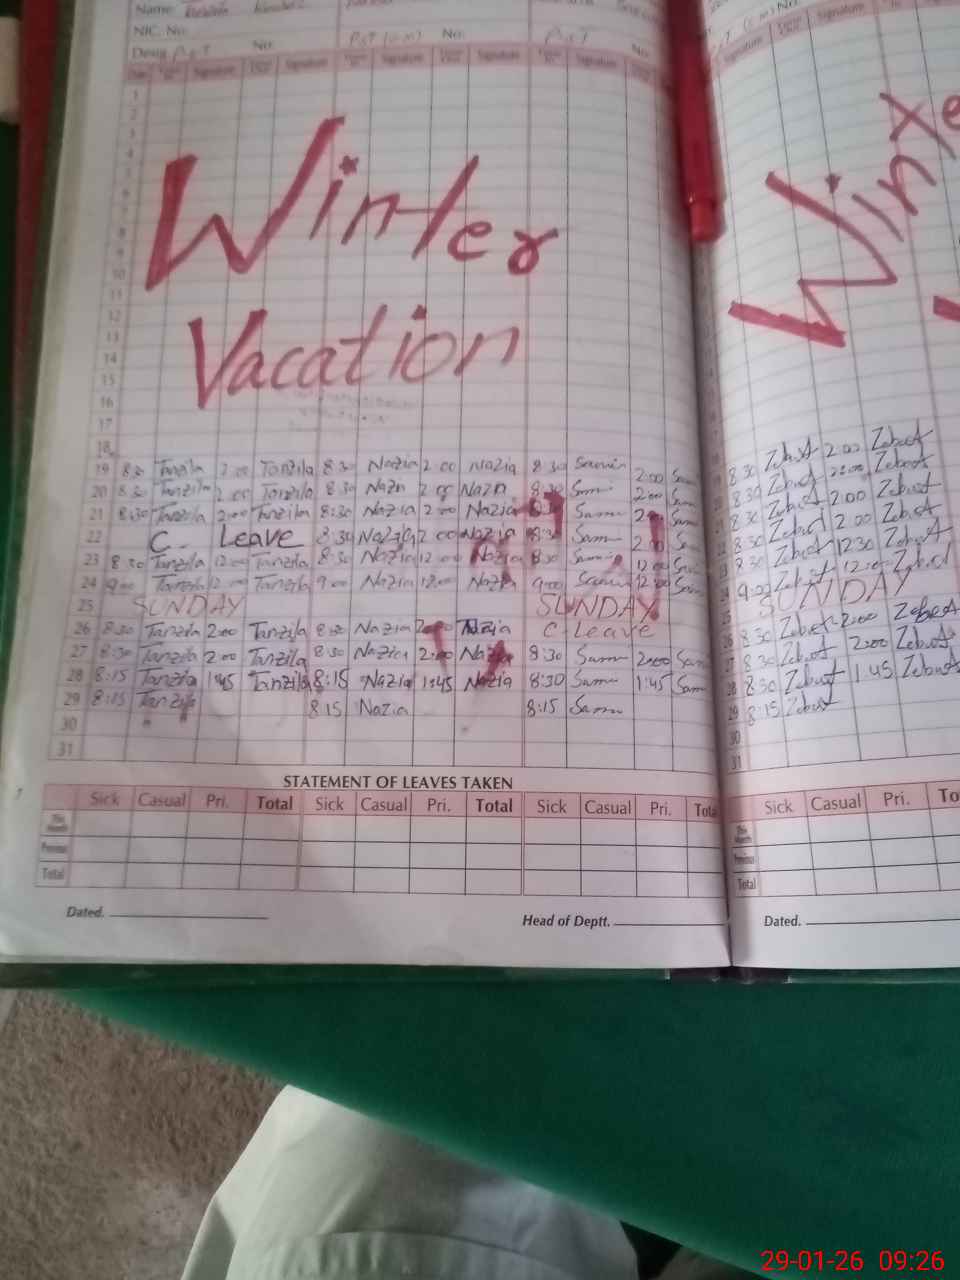 Name:
NIC. No.
Desig. P.S.T No. P.S.T (G.M) No. P.S.T No.
Signature Signature Signature Signature Signature
1
2
3
4
5
6
7
8
9
10
11
12
13
14
15
16
17
18
Winter
Vacation
19 8:30 Tanzila 2:00 Tanzila 8:30 Nazia 2:00 Nazia 8:30 Samin 2:00 Sam
20 8:30 Tanzila 2:00 Tanzila 8:30 Nazn 2:00 Nazn 8:30 Sami 2:00 Sam
21 8:30 Tanzila 2:00 Tanzila 8:30 Nazia 2:00 Nazia 8:30 Sam Sam
22 C. Leave 8:30 Nazia 2:00 Nazia 8:30 Sam 2:00 Sam
23 8:30 Tanzila 12:00 Tanzila 8:30 Nazia 12:00 Nazia 8:30 Sam 12:00 Sam
24 9:00 Tanzila 12:00 Tanzila 9:00 Nazia 12:00 Nazia 9:00 Sam 12:00 Sam
25 SUNDAY SUNDAY
26 8:30 Tanzila 2:00 Tanzila 8:30 Nazia 2:00 Nazia C-Leave
27 8:30 Tanzila 2:00 Tanzila 8:30 Nazia 2:00 Nazia 8:30 Sam 2:00 Sam
28 8:15 Tanzila 1:45 Tanzila 8:15 Nazia 1:45 Nazia 8:30 Sam 1:45 Sam
29 8:15 Tanzila 8:15 Nazia 8:15 Sam
30
31
STATEMENT OF LEAVES TAKEN
Sick Casual Pri. Total Sick Casual Pri. Total Sick Casual Pri. Total
This Month
Previous
Total
Dated. Head of Deptt.
Signature Signature
Winte
8:30 Zebust 2:00 Zebust
8:30 Zebust 2:00 Zebust
8:30 Zebust 2:00 Zebust
8:30 Zebust 2:00 Zebust
8:30 Zebust 12:30 Zebust
9:00 Zebust 12:00 Zebust
SUNDAY
26 8:30 Zebust 2:00 Zebust
27 8:30 Zebust 2:00 Zebust
28 8:30 Zebust 1:45 Zebust
29 8:15 Zebust
30
31
Sick Casual Pri. To
This Month
Previous
Total
Dated.
29-01-26 09:26